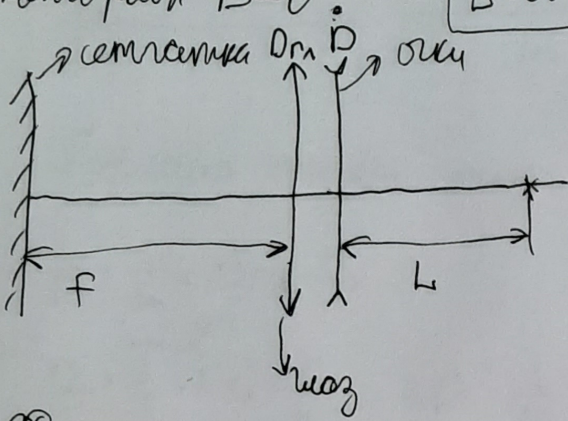 сетчатка Dгл D очки
f
L
глаз